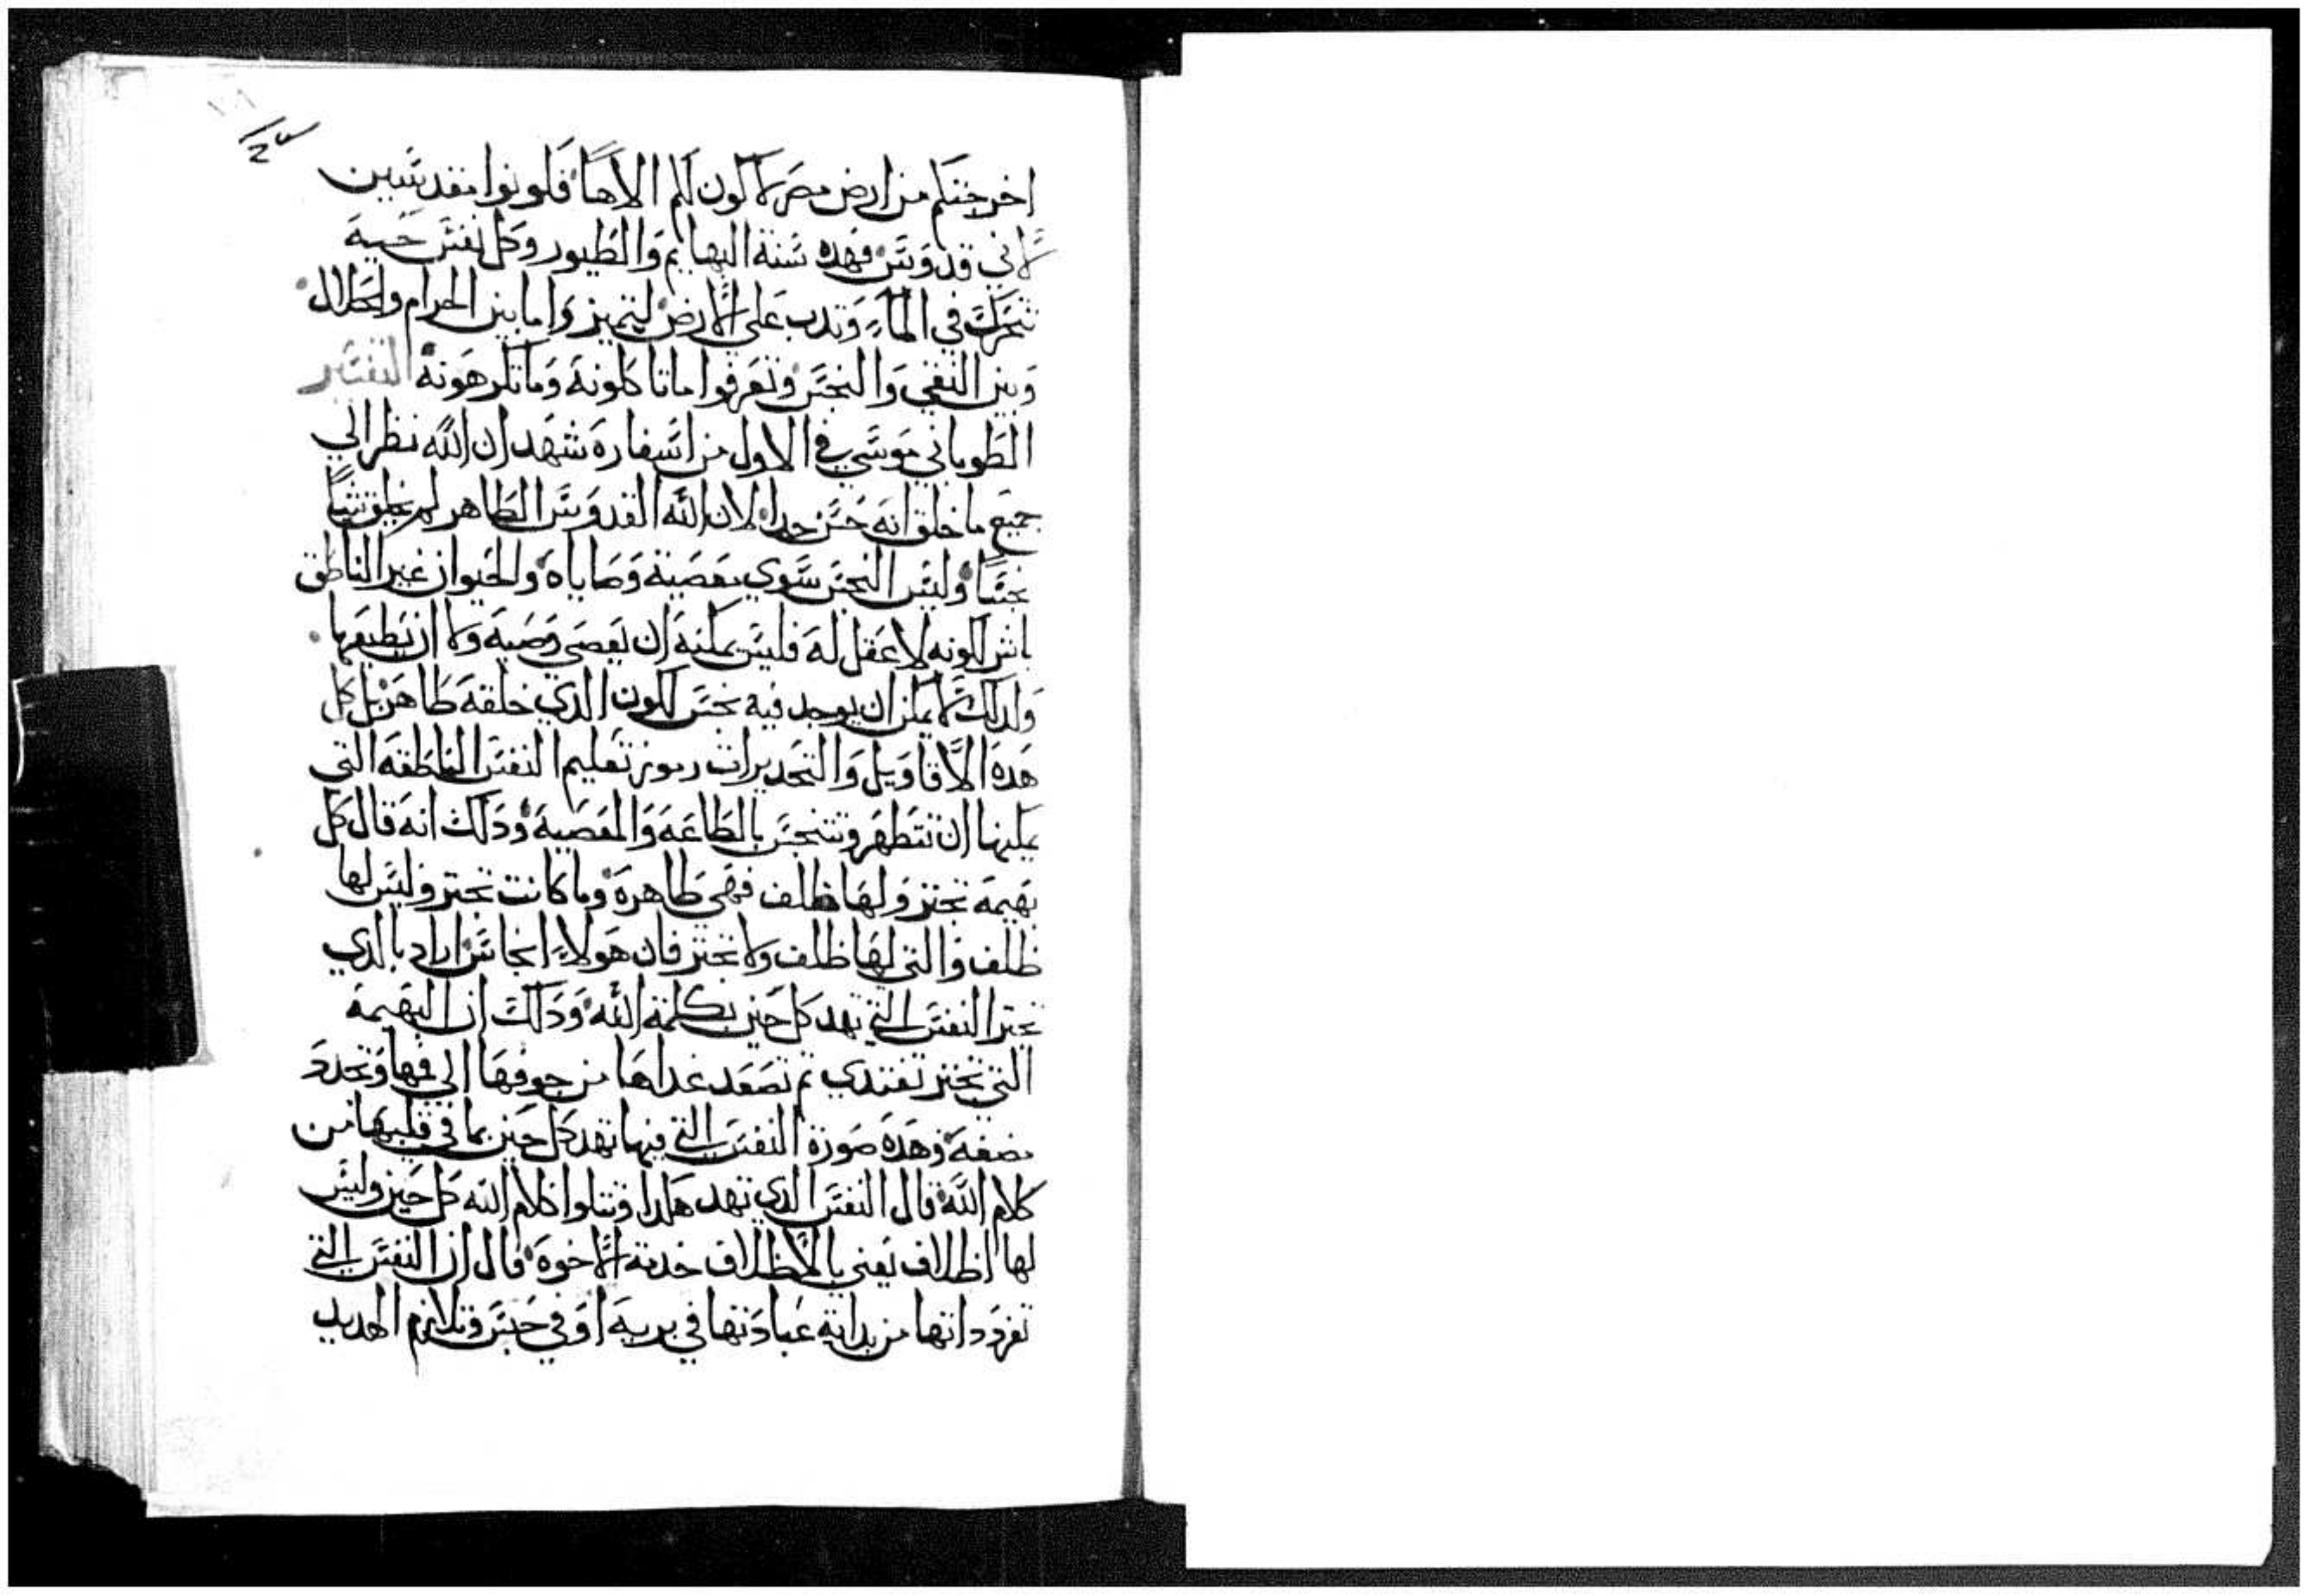 اخرجتكم من ارض مصر لاكون لكم الاهاً فكونوا مقدسين
لاني قدوس فهده سنة البهايم والطيور وكل نفس حية
تتحرك في الماء وتدب على الارض ليتميز واما بين الحرام والحلال
وبين النقي والنجس وتعرفوا ما تاكلونه وما تكرهونه التفسير
الطوباني موسي في الاول من اسفاره شهد ان الله نظر الي
جميع ما خلق انه حسن جدا لان الله القدوس الطاهر لم يخلق شياً
نجساً وليس النجس سوي معصية وصاياه والحيوان غير الناطق
لكونه لا عقل له فليس يمكنه ان يعصي وصية ولا ان يطيعها
ولدلك لا يمكن ان يوجد فيه نجس لكون الذي خلقه طاهر بل كل
هده الاقاويل والتحديرات رموز تعليم النفس الناطقه التي
يمكنها ان تتطهر وتتنجس بالطاعه والمعصية ودلك انه قال كل
بهيمة تجتر ولها ظلف فهي طاهرة وما كانت تجتر وليس لها
ظلف والتي لها ظلف ولا تجتر فان هولاء انجاس اراد بالدي
تجتر النفس التي تهد كل حين بكلمة الله ودلك ان البهيمة
التي تجتر تغتدي تم تصعد غداها من جوفها الى فمها وتجدد
مضغه وهده صورة النفس التي فيها تهد كل حين بما في قلبها من
كلام الله قال النفس الدي تهد هكدا وتتلوا كلام الله كل حين وليس
لها اظلاف يعني بالاظلاف خدمة الاخوة قال ان النفس التي
تفرد داتها من بداية عبادتها في برية او في حبس وتلازم الهديد